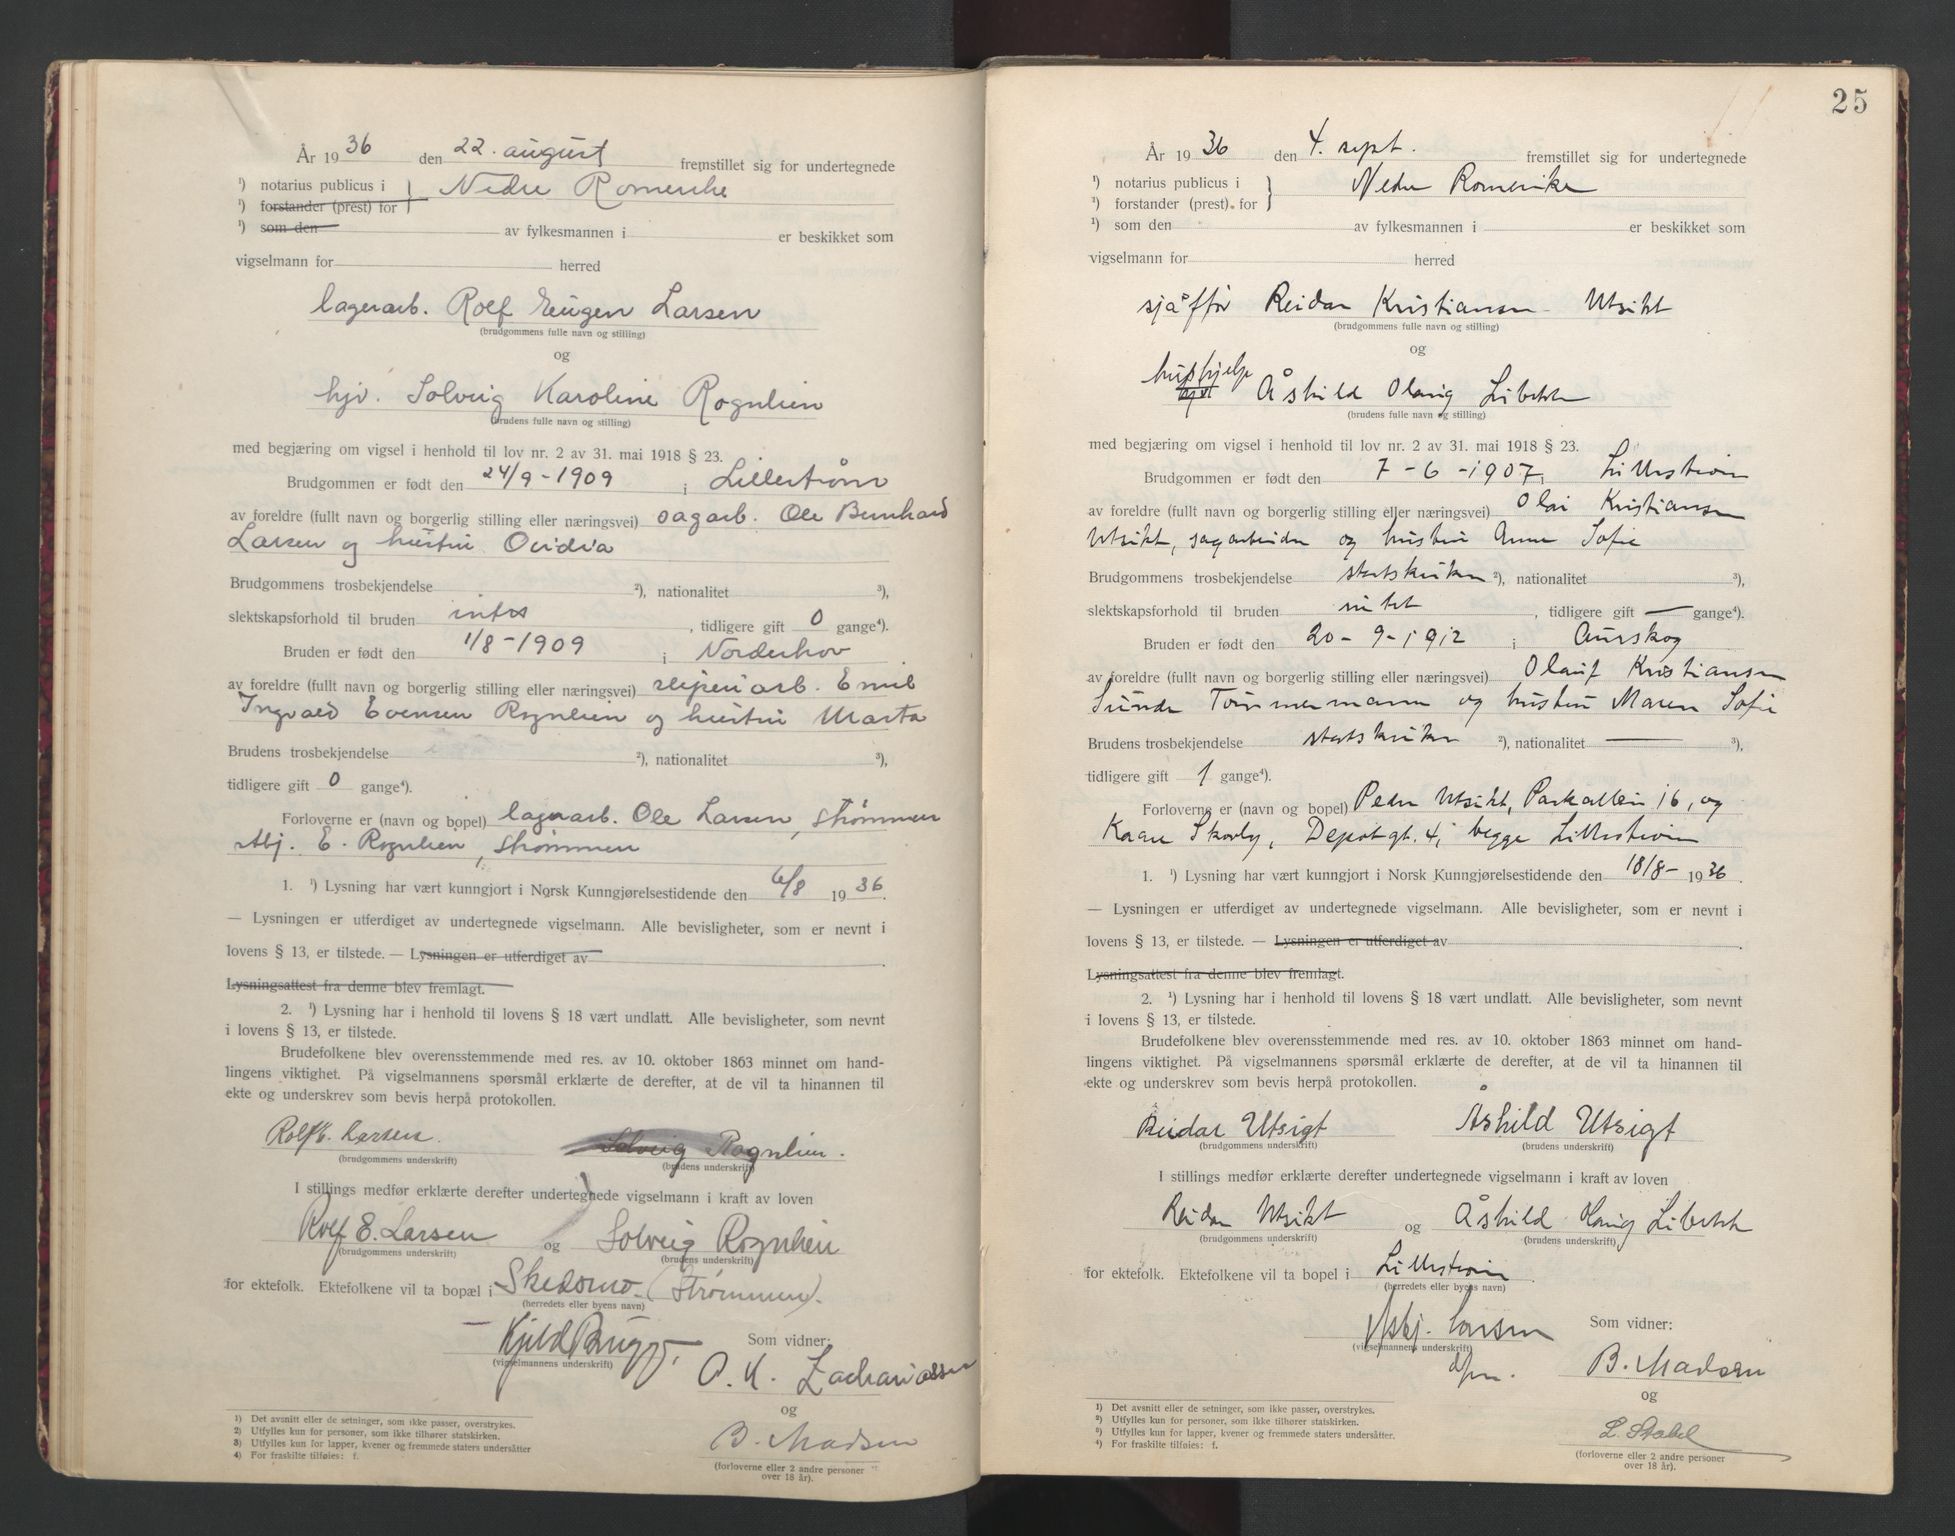 År 19 36 den 22. august fremstillet sig for undertegnede
¹) notarius publicus i } Nedre Romerike
¹) forstander (prest) for
¹) som den av fylkesmannen i er beskikket som
vigselmann for herred
lagerarb. Rolf Eugen Larsen
(brudgommens fulle navn og stilling)
og
hjv. Solveig Karoline Rognlien
(brudens fulle navn og stilling)
med begjæring om vigsel i henhold til lov nr. 2 av 31. mai 1918 § 23.
Brudgommen er født den 24/9-1909 i Lillestrøm
av foreldre (fullt navn og borgerlig stilling eller næringsvei) sagarb. Ole Bernhard
Larsen og hustru Ovidia
Brudgommens trosbekjendelse ²), nationalitet ³),
slektskapsforhold til bruden intet, tidligere gift 0 gange⁴).
Bruden er født den 1/8-1909 i Norderhov
av foreldre (fullt navn og borgerlig stilling eller næringsvei) sliperiarb. Emil
Ingvald Evensen Rognlien og hustru Marta
Brudens trosbekjendelse ²), nationalitet ³),
tidligere gift 0 gange⁴).
Forloverne er (navn og bopel) lagerarb. Ole Larsen, Strømmen
Abj. E. Rognlien, Strømmen
1. ¹) Lysning har vært kunngjort i Norsk Kunngjørelsestidende den 6/8 19 36.
— Lysningen er utferdiget av undertegnede vigselmann. Alle bevisligheter, som er nevnt i
lovens § 13, er tilstede. — Lysningen er utferdiget av
Lysningsattest fra denne blev fremlagt.
2. ¹) Lysning har i henhold til lovens § 18 vært undlatt. Alle bevisligheter, som nevnt
i lovens § 13, er tilstede.
Brudefolkene blev overensstemmende med res. av 10. oktober 1863 minnet om hand-
lingens viktighet. På vigselmannens spørsmål erklærte de derefter, at de vil ta hinannen til
ekte og underskrev som bevis herpå protokollen.
Rolf E. Larsen. Solveig Rognlien.
(brudgommens underskrift) (brudens underskrift)
I stillings medfør erklærte derefter undertegnede vigselmann i kraft av loven
Rolf E. Larsen og Solveig Rognlien
(brudgommens underskrift) (brudens underskrift)
for ektefolk. Ektefolkene vil ta bopæl i Skedsmo (Strømmen).
(herredets eller byens navn)
Kjeld Brugg, Som vidner:
(vigselmannens underskrift) O. M. Zachariassen
og
B. Madsen
(forloverne eller 2 andre personer
over 18 år).
1) Det avsnitt eller de setninger, som ikke passer, overstrykes.
2) Utfylles kun for personer, som ikke tilhører statskirken.
3) Utfylles kun for lapper, kvener og fremmede staters undersåtter
4) For fraskilte tilføies: f.
25
År 19 36 den 4. sept. fremstillet sig for undertegnede
¹) notarius publicus i } Nedre Romerike
¹) forstander (prest) for
¹) som den av fylkesmannen i er beskikket som
vigselmann for herred
sjåffør Reidar Kristiansen Utsikt
(brudgommens fulle navn og stilling)
og
hushjelp
Åshild Olaug Libekk
(brudens fulle navn og stilling)
med begjæring om vigsel i henhold til lov nr. 2 av 31. mai 1918 § 23.
Brudgommen er født den 7-6-1907 i Lillestrøm
av foreldre (fullt navn og borgerlig stilling eller næringsvei) Olai Kristiansen
Utsikt, sagarbeider og hustru Anne Sofie
Brudgommens trosbekjendelse statskirken ²), nationalitet ³),
slektskapsforhold til bruden intet, tidligere gift — gange⁴).
Bruden er født den 20-9-1912 i Aurskog
av foreldre (fullt navn og borgerlig stilling eller næringsvei) Olauf Kristiansen
Sunde Tømmermann og hustru Maren Sofie
Brudens trosbekjendelse statskirken ²), nationalitet — ³),
tidligere gift 1 gange⁴).
Forloverne er (navn og bopel) Peder Utsikt, Parkalleen 16, og
Kaare Skovly, Depotgt. 4, begge Lillestrøm
1. ¹) Lysning har vært kunngjort i Norsk Kunngjørelsestidende den 18/8- 19 36.
— Lysningen er utferdiget av undertegnede vigselmann. Alle bevisligheter, som er nevnt i
lovens § 13, er tilstede. — Lysningen er utferdiget av
Lysningsattest fra denne blev fremlagt.
2. ¹) Lysning har i henhold til lovens § 18 vært undlatt. Alle bevisligheter, som nevnt
i lovens § 13, er tilstede.
Brudefolkene blev overensstemmende med res. av 10. oktober 1863 minnet om hand-
lingens viktighet. På vigselmannens spørsmål erklærte de derefter, at de vil ta hinannen til
ekte og underskrev som bevis herpå protokollen.
Reidar Utsigt Åshild Utsigt
(brudgommens underskrift) (brudens underskrift)
I stillings medfør erklærte derefter undertegnede vigselmann i kraft av loven
Reidar Utsikt og Åshild Olaug Libekk
(brudgommens underskrift) (brudens underskrift)
for ektefolk. Ektefolkene vil ta bopel i Lillestrøm
(herredets eller byens navn)
Asbj. Larsen Som vidner:
(vigselmannens underskrift)
B. Madsen
og
L. Stabel
(forloverne eller 2 andre personer
over 18 år).
1) Det avsnitt eller de setninger, som ikke passer, overstrykes.
2) Utfylles kun for personer, som ikke tilhører statskirken.
3) Utfylles kun for lapper, kvener og fremmede staters undersåtter.
4) For fraskilte tilføies: f.